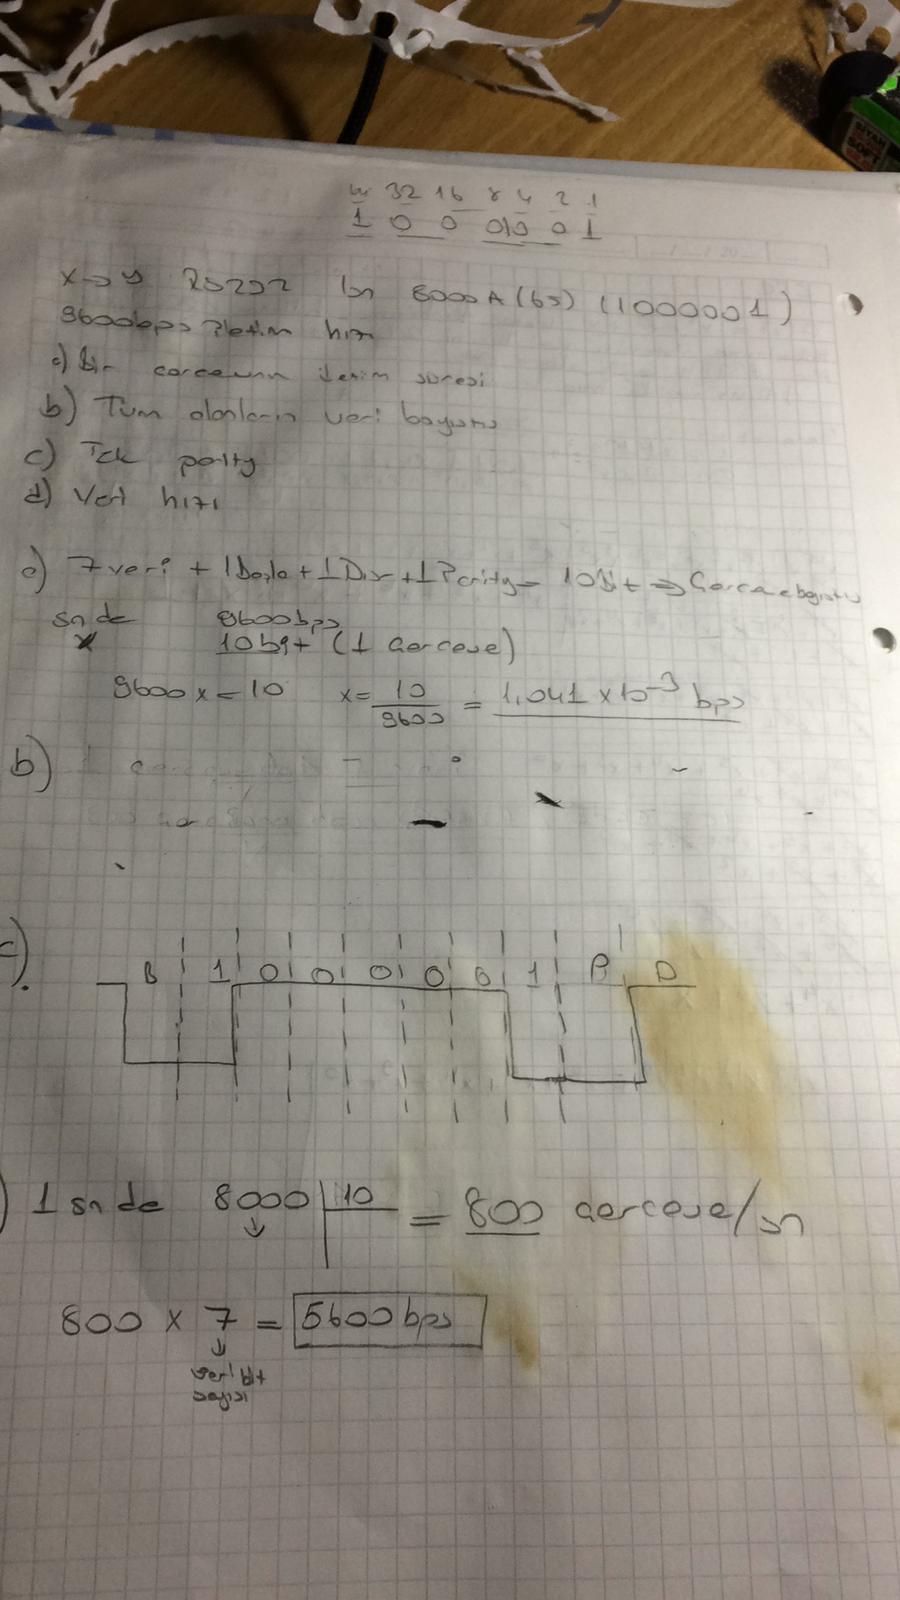 64 32 16 8 4 2 1
1 0 0 0 0 0 1
x→y RS232 8000 A (65) (1000001)
9600bps iletim hızı
a) Bir çercevenin iletim süresi
b) Tüm alanların veri boyutu
c) Tek parity
d) Veri hızı
a) 7 veri + 1 Başla + 1 Dur + 1 Parity = 10 Bit ⇒ Cerceve boyutu
snde 9600bps
x 10bit (1 cerceve)
9600x = 10 x = 10/9600 = 1,041 x 10⁻³ bps
b)
c)
B 1 0 0 0 0 0 1 P D
) 1 sn de 8000 | 10 = 800 cerceve/sn
800 x 7 = 5600 bps
veri bit
sayısı
SİYAH
SOFT